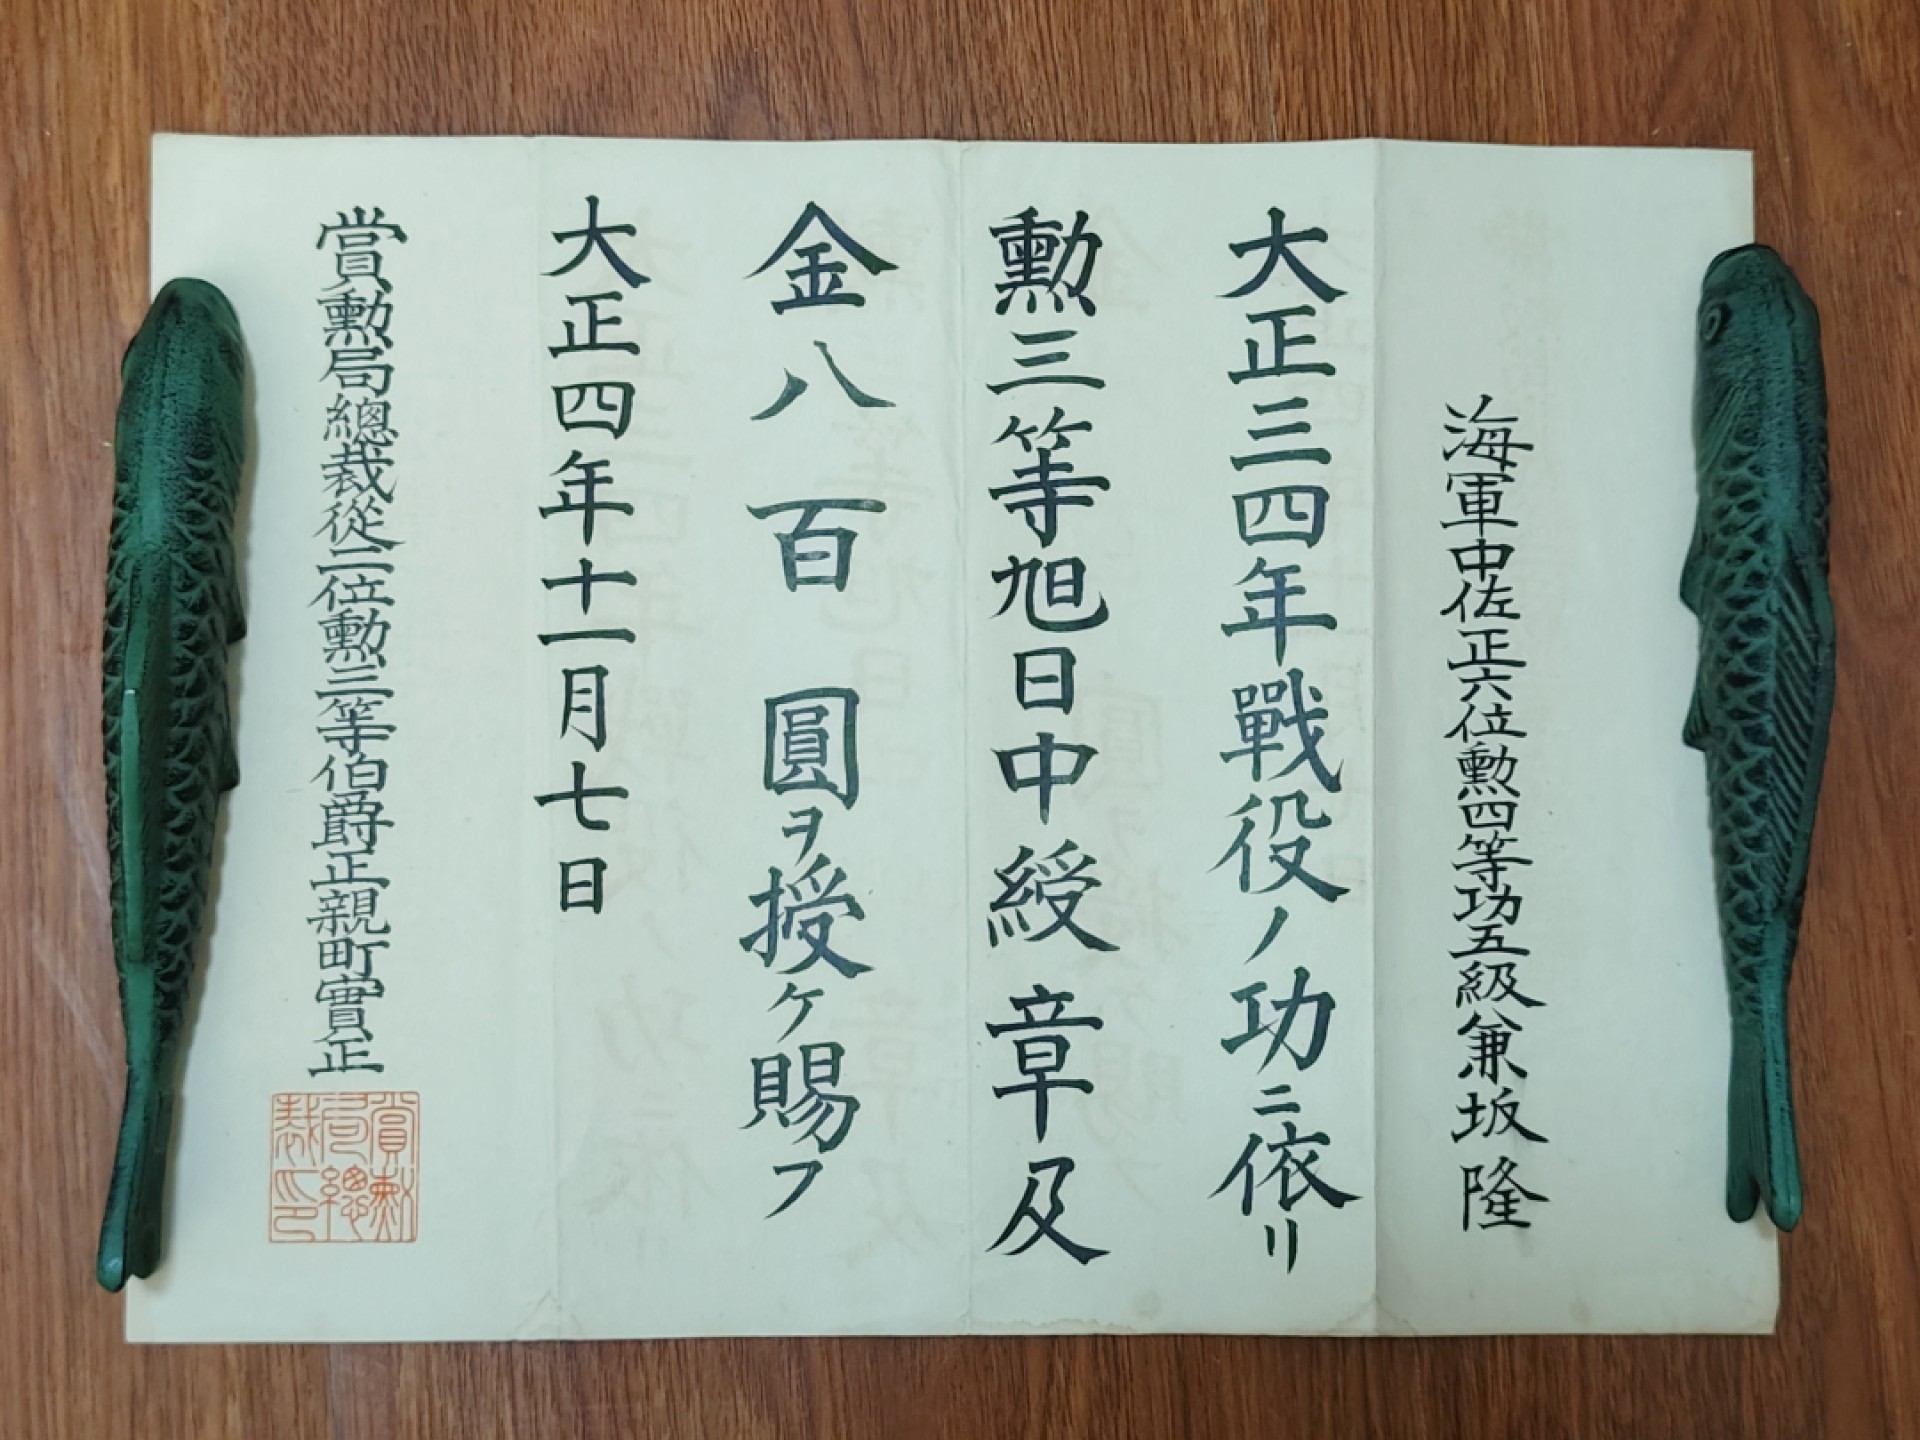 海軍中佐正六位勲四等功五級兼坂隆
大正三四年戰役ノ功ニ依リ
勲三等旭日中綬章及
金八百圓ヲ授ケ賜フ
大正四年十一月七日
賞勲局總裁從二位勲三等伯爵正親町實正
賞勲
局總
裁印